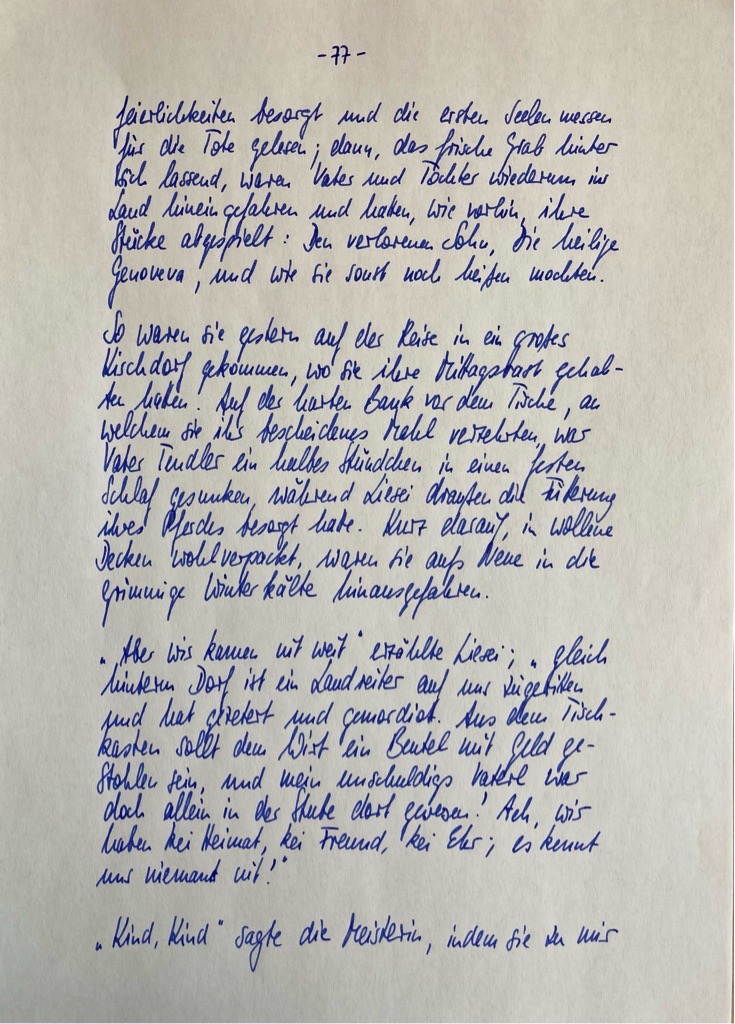 - 77 -
feierlichkeiten besorgt und die ersten Seelenmessen
für die Tote gelesen; dann, das frische Grab hinter
sich lassend, waren Vater und Tochter wiederum ins
Land hineingefahren und haten, wie vorhin, ihre
Stücke abgespielt: Den verlorenen Sohn, Die heilige
Genoveva, und wie sie sonst noch heißen mochten.
So waren sie gestern auf der Reise in ein großes
Kirchdorf gekommen, wo sie ihre Mittagsrast gehal-
ten haten! Auf der harten Bank vor dem Tische, an
welchem sie ihr bescheidenes Mahl verzehrten, war
Vater Tendler ein halbes Stündchen in einen festen
Schlaf gesunken, während Liesei draußen die Fütterung
ihres Pferdes besorgt hate. Kurz darauf, in wollene
Decken wohlverpackt, waren sie aufs Neue in die
grimmige Winterkälte hinausgefahren.
„Aber wir kamen nit weit" erzählte Liesei; „gleich
hinterm Dorf ist ein Landreiter auf uns zugeritten
und hat gezetert und gemordiot. Aus dem Tisch-
kasten sollt dem Wirt ein Beutel mit Geld ge-
stohlen sein, und mein unschuldigs Vaterl war
doch allein in der Stube dort gewesen! Ach, wir
haben kei Heimat, kei Freund, kei Ehr; es kennt
uns niemant nit!"
„Kind, Kind" sagte die Meisterin, indem sie zu mir